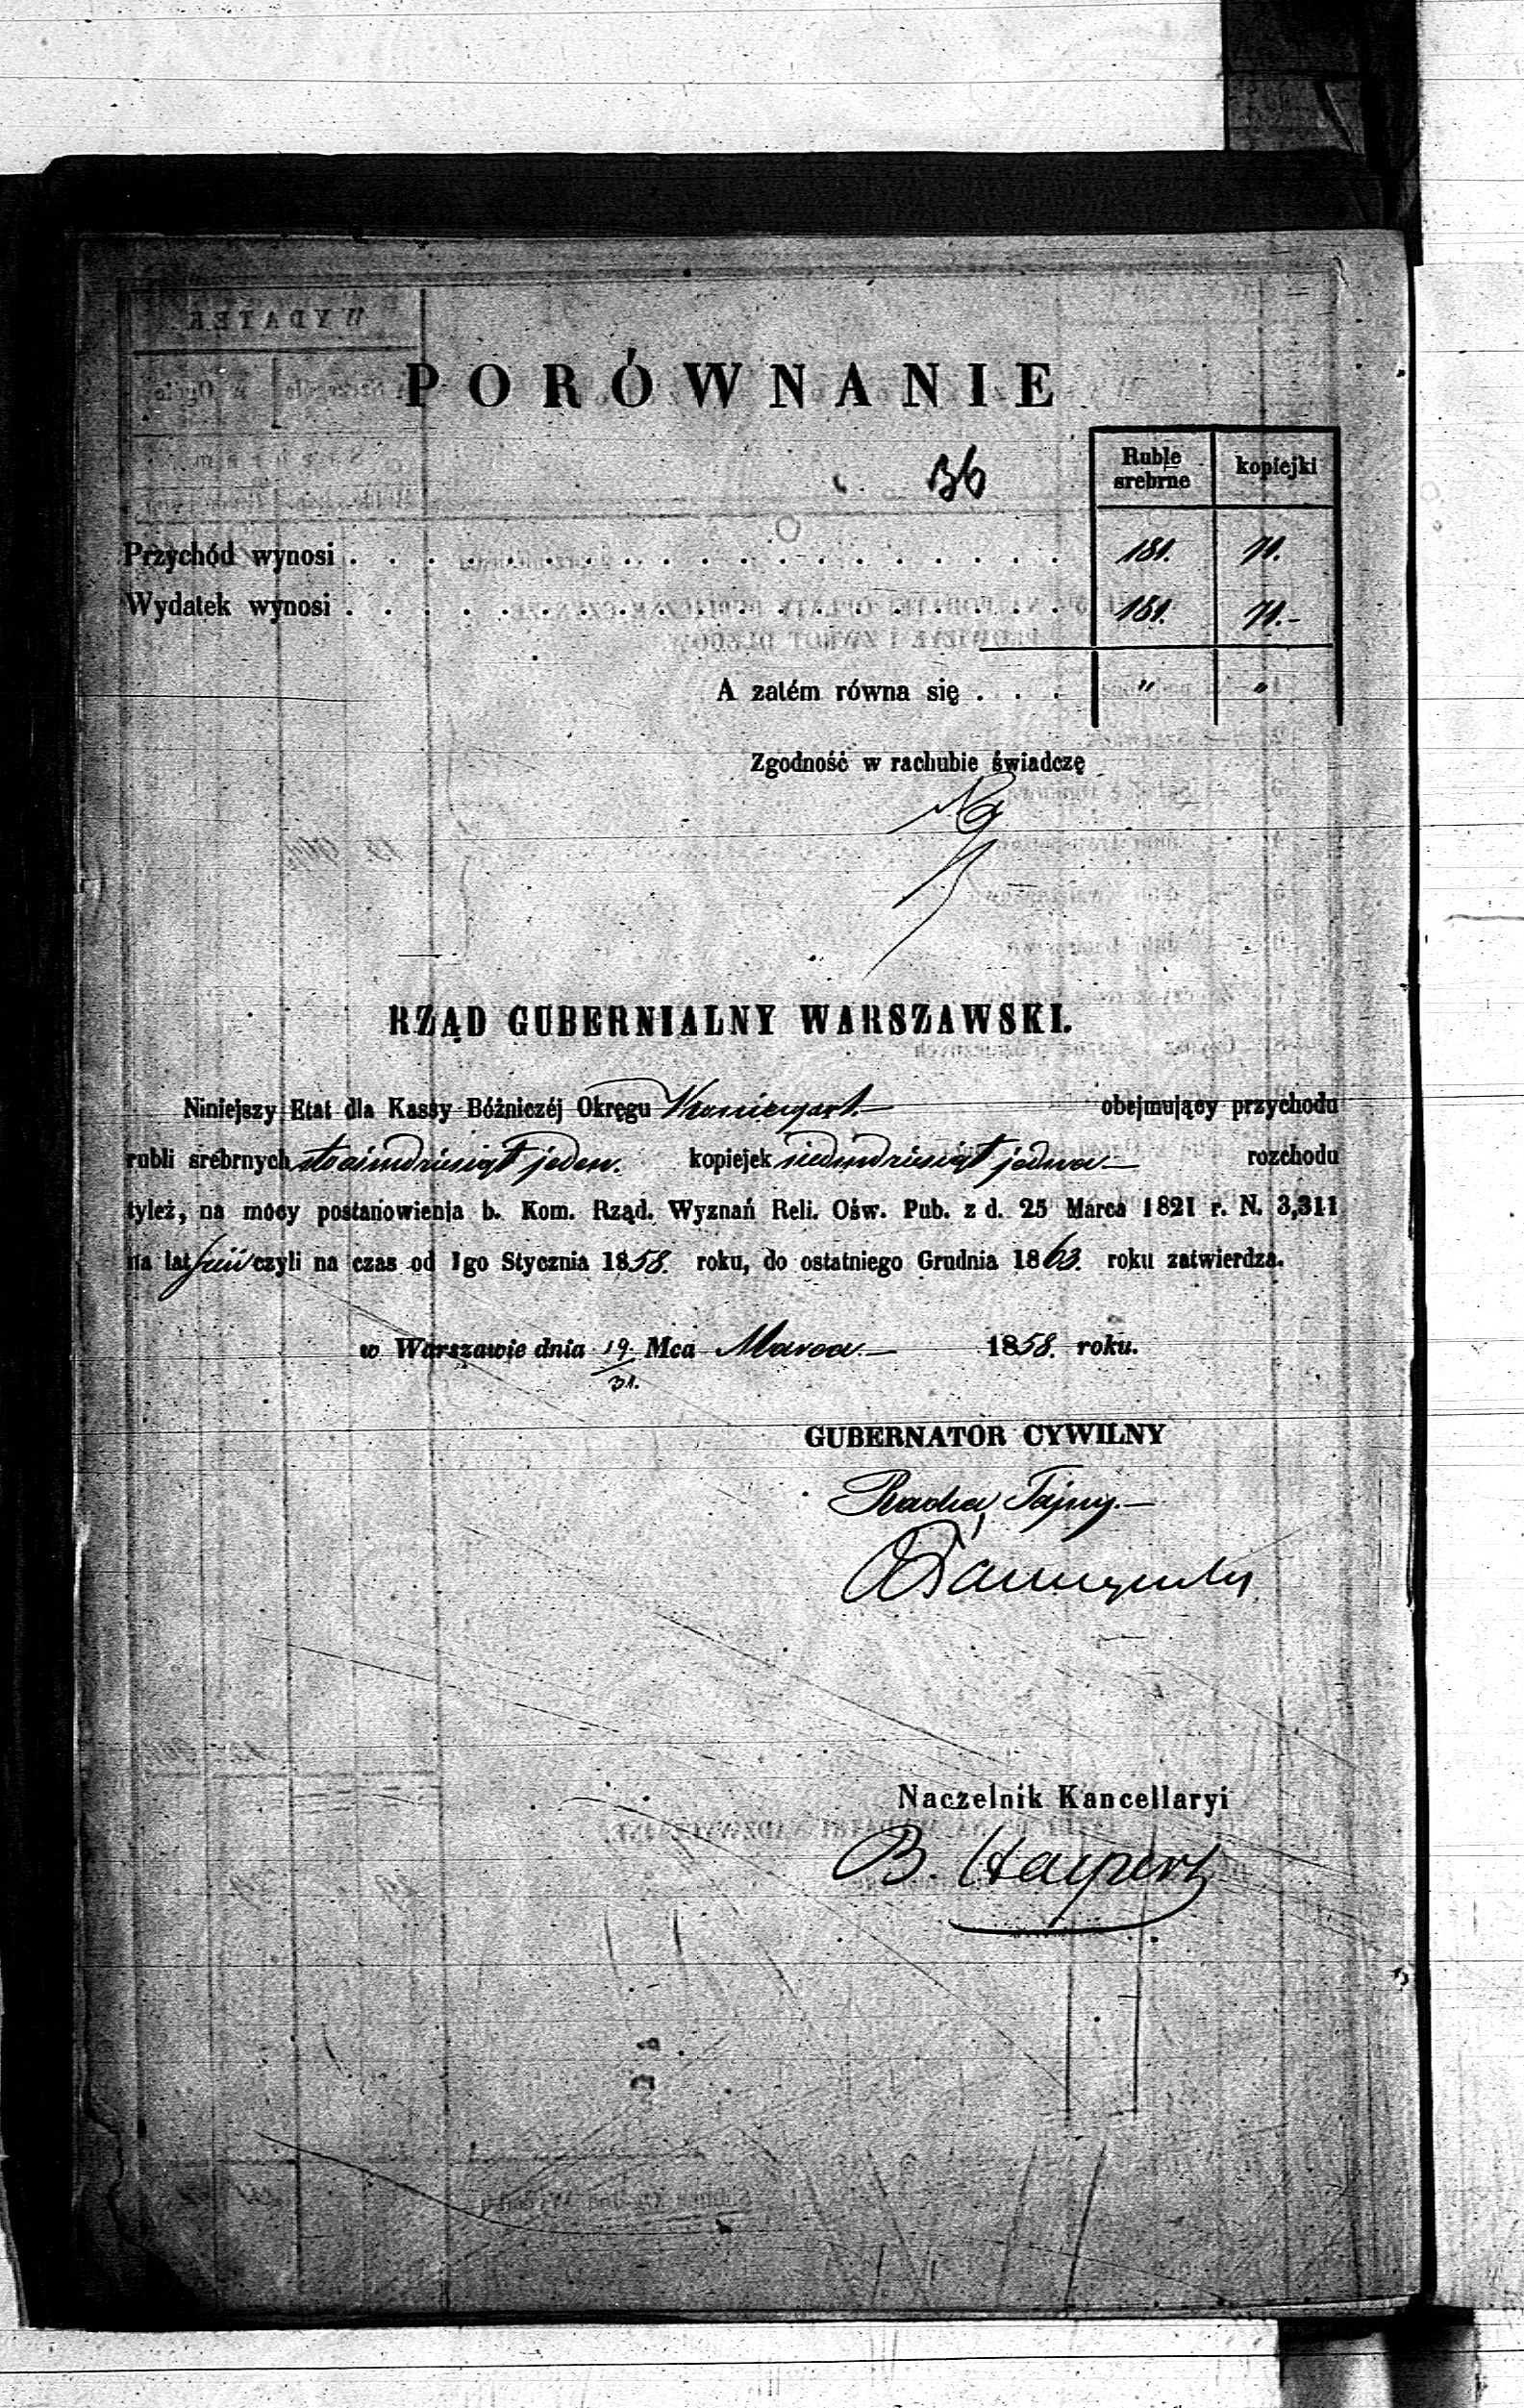 PORÓWNANIE
36
Ruble srebrne kopiejki
Przychód wynosi . . . 181. 71.
Wydatek wynosi . . . 181. 71.-
A zatém równa się . . . " "
Zgodność w rachubie świadczę
RZĄD GUBERNIALNY WARSZAWSKI.
Niniejszy Etat dla Kassy Bóżniczéj Okręgu obejmujący przychodu
rubli srebrnych jeden. kopiejek siedmdziesiąt jedna— rozchodu
tyleż, na mocy postanowienia b. Kom. Rząd. Wyznań Reli. Ośw. Pub. z d. 25 Marca 1821 r. N. 3,311
na lat czyli na czas od 1go Stycznia 1858. roku, do ostatniego Grudnia 1863. roku zatwierdza.
w Warszawie dnia 19/31. Mca Marca— 1858. roku.
GUBERNATOR CYWILNY
Radca Tajny.—
Naczelnik Kancellaryi
B. Halpert